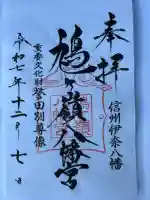 奉拝
信州伊奈八幡
鳩ヶ嶺八幡宮
重要文化財誉田別尊像
令和七年十二月七日